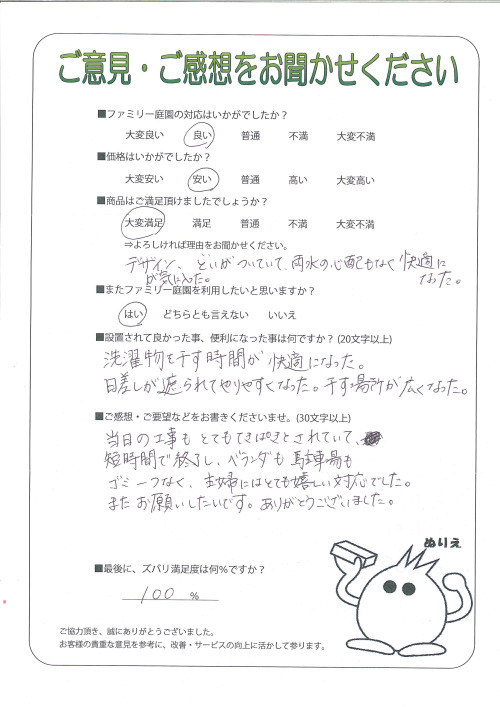 ご意見・ご感想をお聞かせください
■ファミリー庭園の対応はいかがでしたか？
大変良い 良い 普通 不満 大変不満
■価格はいかがでしたか？
大変安い 安い 普通 高い 大変高い
■商品はご満足頂けましたでしょうか？
大変満足 満足 普通 不満 大変不満
⇒よろしければ理由をお聞かせください。
デザイン、といがついていて、雨水の心配もなく快適に
が気に入った。 なった。
■またファミリー庭園を利用したいと思いますか？
はい どちらとも言えない いいえ
■設置されて良かった事、便利になった事は何ですか？(20文字以上)
洗濯物を干す時間が快適になった。
日差しが遮られてやりやすくなった。干す場所が広くなった。
■ご感想・ご要望などをお書きくださいませ。(30文字以上)
当日の工事もとてもてきぱきとされていて、
短時間で終了し、ベランダも駐車場も
ゴミ一つなく、主婦にはとても嬉しい対応でした。
またお願いしたいです。ありがとうございました。
ぬりえ
■最後に、ズバリ満足度は何%ですか？
100 %
ご協力頂き、誠にありがとうございました。
お客様の貴重な意見を参考に、改善・サービスの向上に活かして参ります。